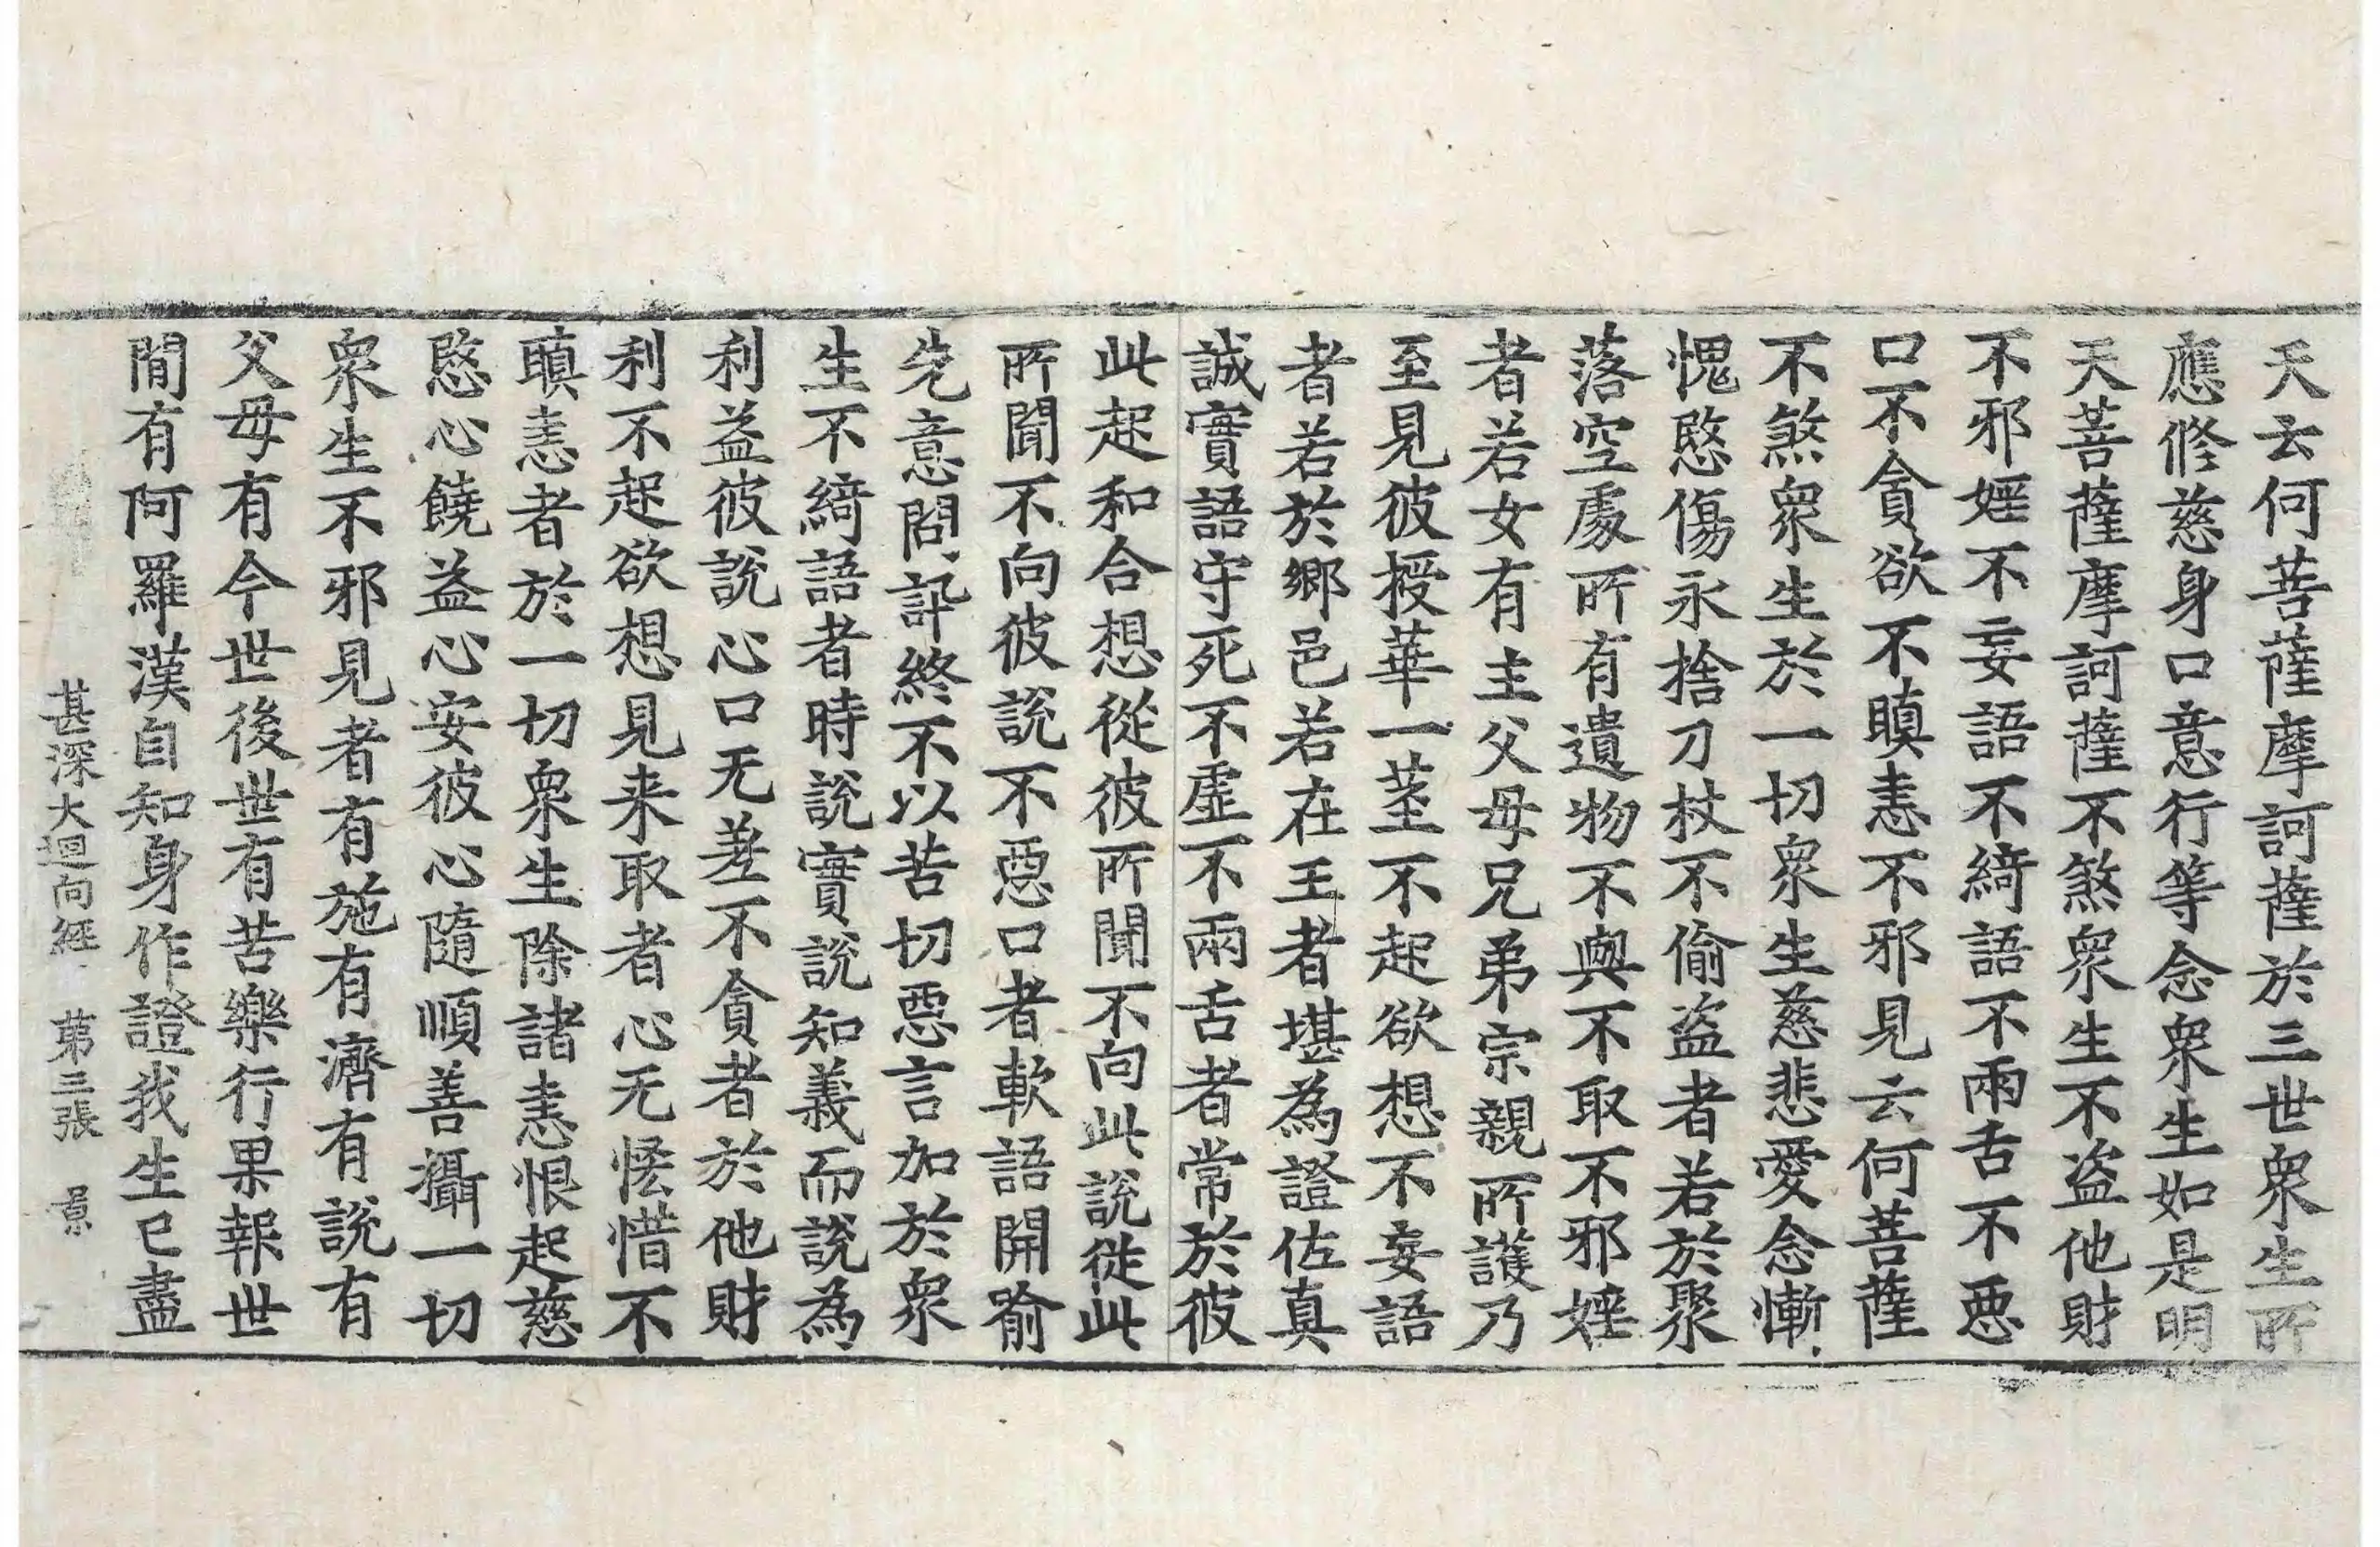 天云何菩薩摩訶薩於三世衆生所
應修慈身口意行等念衆生如是明
天菩薩摩訶薩不煞衆生不盜他財
不邪婬不妄語不綺語不兩舌不惡
口不貪欲不瞋恚不邪見云何菩薩
不煞衆生於一切衆生慈悲愛念慚
愧愍傷永捨刀杖不偷盜者若於聚
落空處所有遺物不與不取不邪婬
者若女有主父母兄弟宗親所護乃
至見彼授華一莖不起欲想不妄語
者若於鄉邑若在王者堪為證佐真
誠實語守死不虛不兩舌者常於彼
此起和合想從彼所聞不向此說從此
所聞不向彼說不惡口者軟語開喻
先意問訊終不以苦切惡言加於衆
生不綺語者時說實說知義而說為
利益彼說心口无差不貪者於他財
利不起欲想見来取者心无悋惜不
瞋恚者於一切衆生除諸恚恨起慈
愍心饒益心安彼心隨順善攝一切
衆生不邪見者有施有濟有說有
父母有今世後世有苦樂行果報世
閒有阿羅漢自知身作證我生已盡
甚深大迴向經 第三張 景